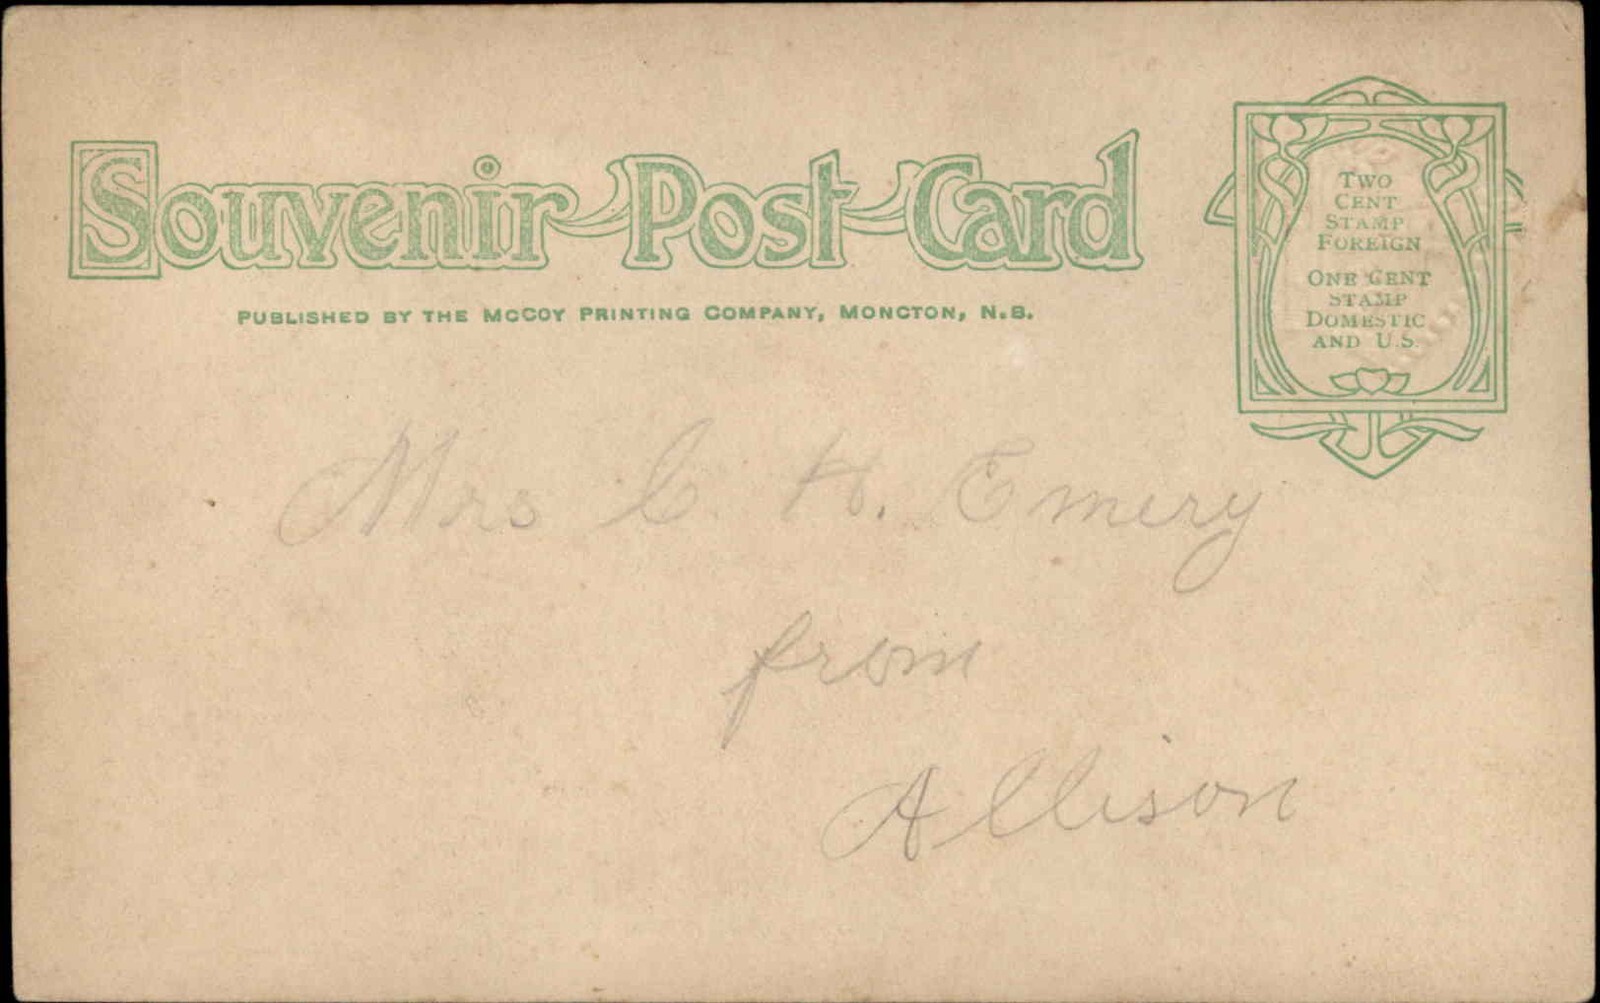 Souvenir Post Card
PUBLISHED BY THE MCCOY PRINTING COMPANY, MONCTON, N.B.
TWO
CENT
STAMP
FOREIGN
ONE CENT
STAMP
DOMESTIC
AND U.S.
Mrs C. H. Emery
from
Allison